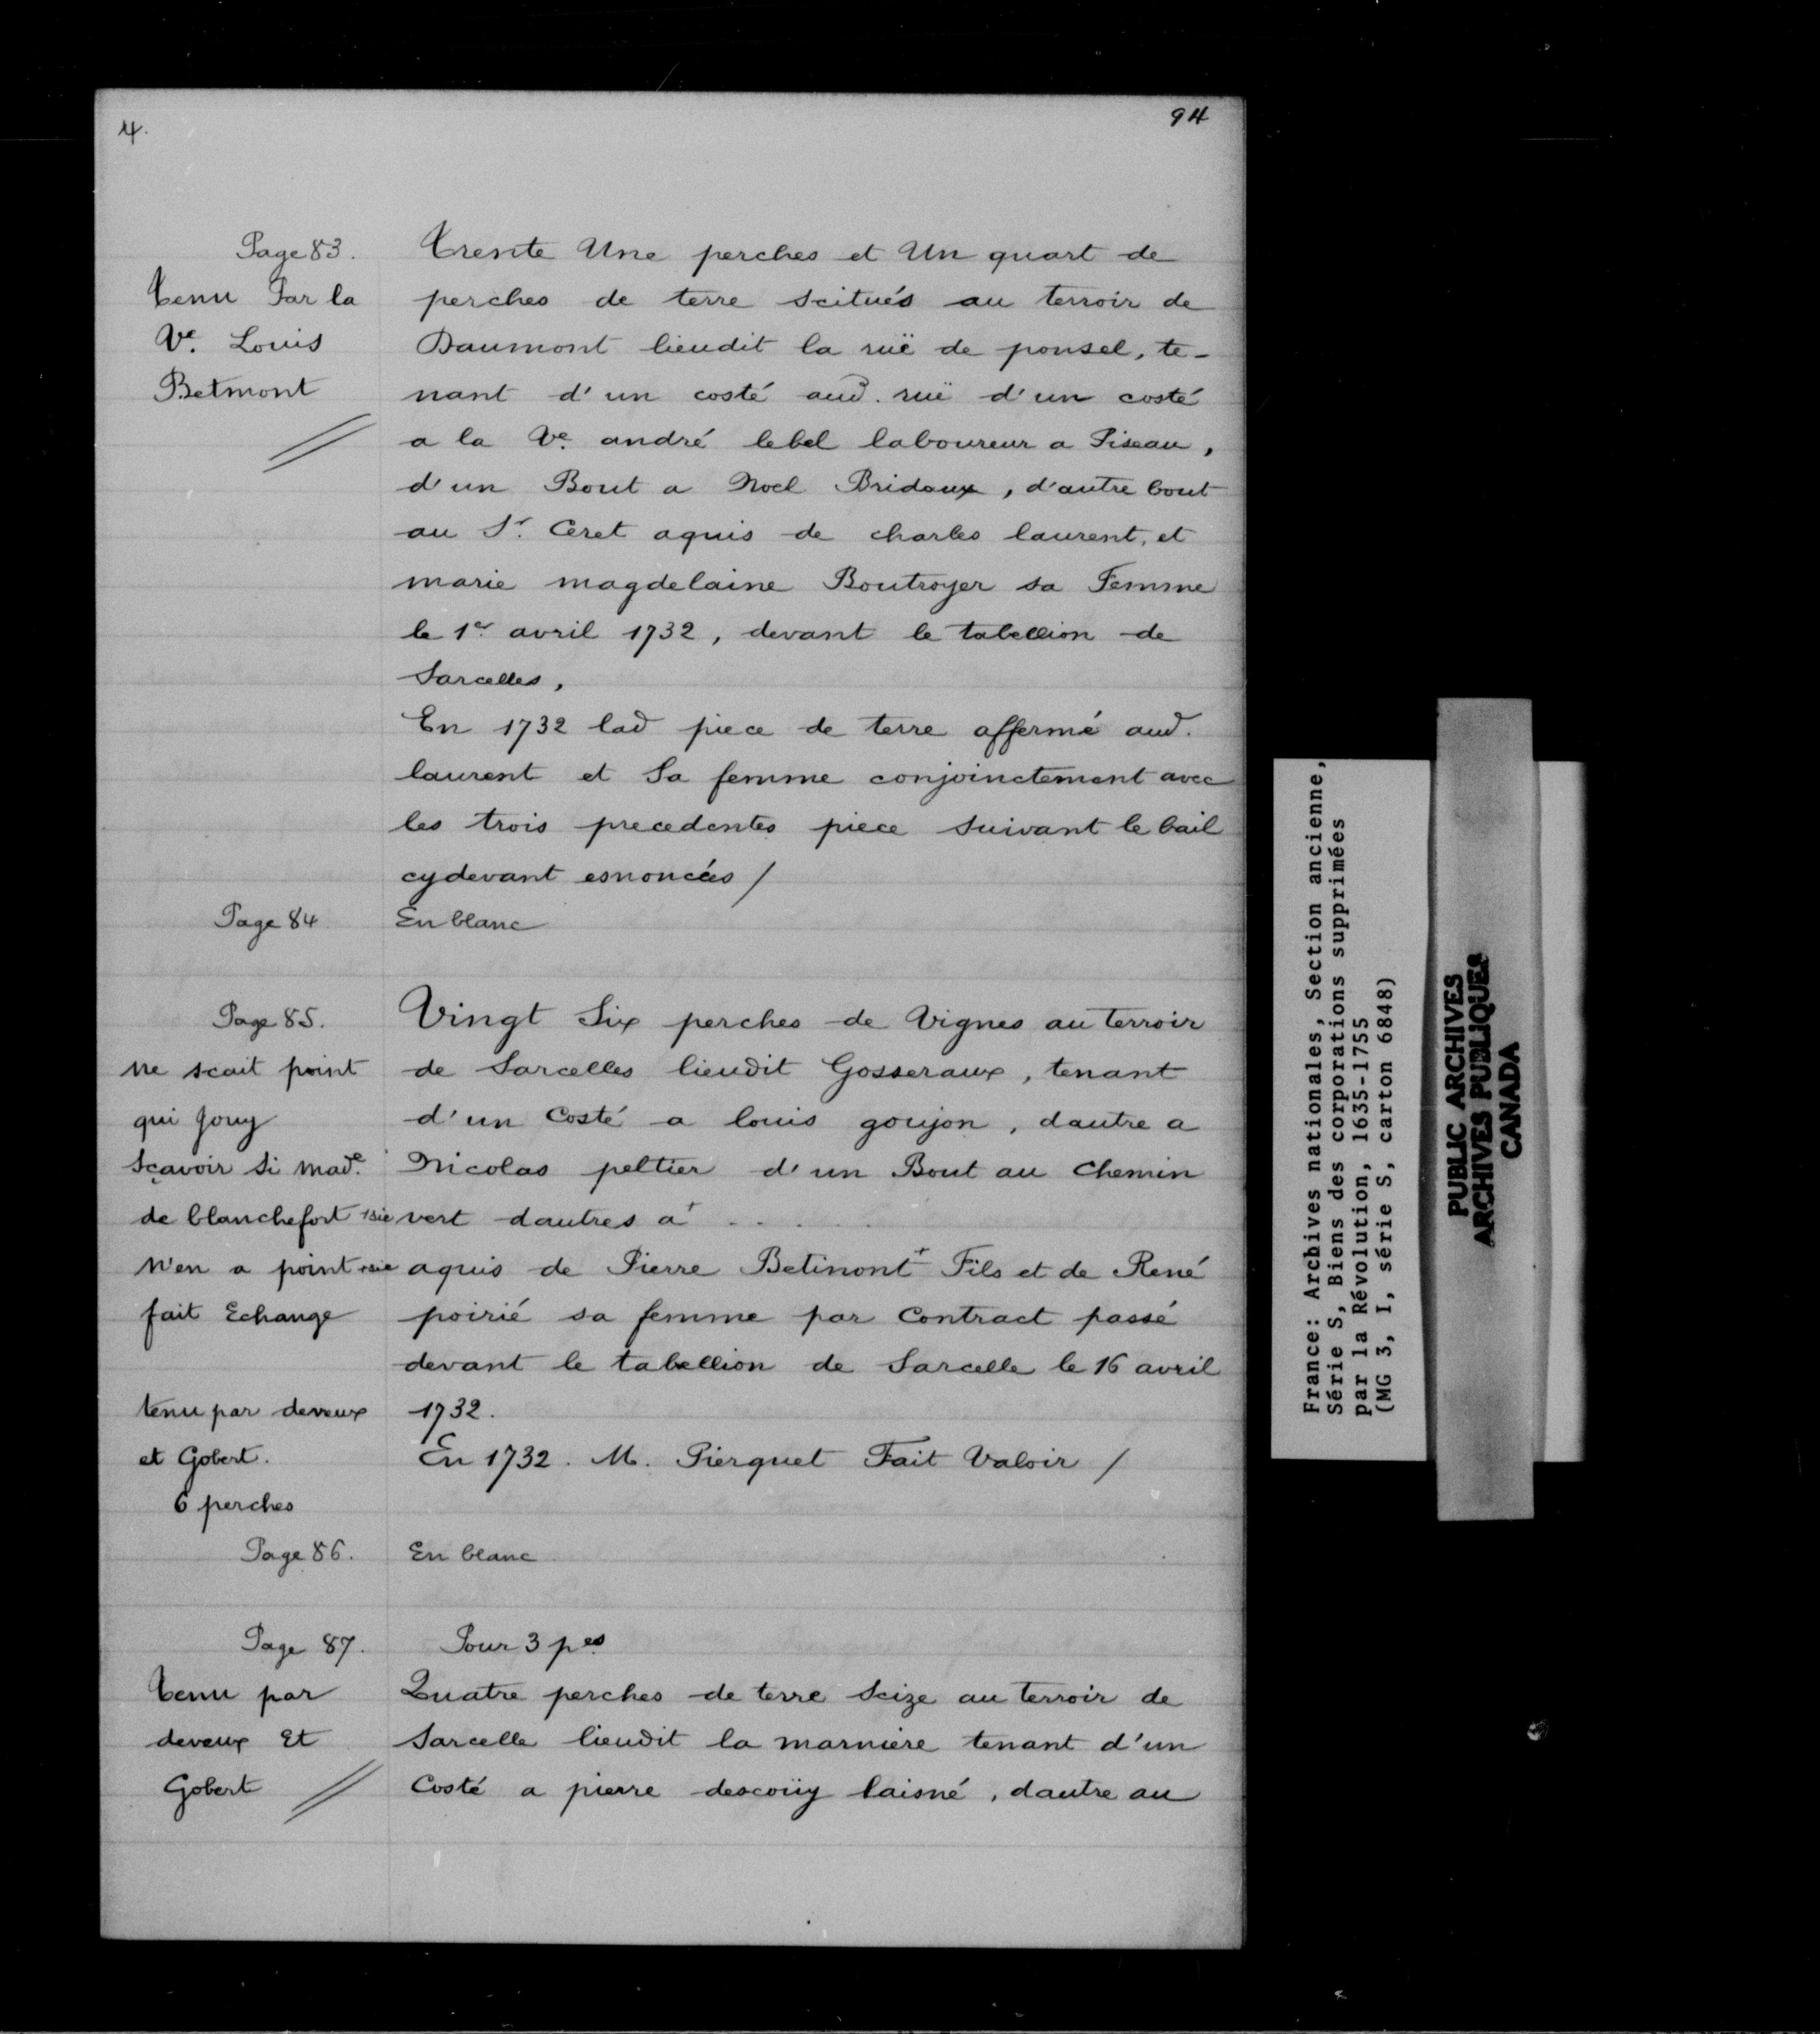 4.
94
Page 83.
Tenu Par la
Ve. Louis
Betmont
Trente Une perches et Un quart de
perches de terre scitués au terroir de
Daumont lieudit la ruë de ponsel, te-
nant d'un costé aud. ruë d'un costé
a la Ve. andré lebel laboureur a Piseau,
d'un Bout a Noel Bridoux, d'autre bout
au Sr. Ceret aquis de charles laurent, et
marie magdelaine Boutroyer sa Femme
le 1er avril 1732, devant le tabellion de
Sarcelles,
En 1732 lad piece de terre affermé aud.
laurent et Sa femme conjoinctement avec
les trois precedentes piece suivant le bail
cydevant esnoncées /
Page 84
En blanc
Page 85.
ne scait point
qui Jouy
Sçavoir Si made.
de blanchefort + sic
N'en a point + sic
fait Echange
tenu par deveux
et Gobert.
6 perches
Vingt Six perches de Vignes au terroir
de Sarcelles lieudit Gosseraux, tenant
d'un Costé a louis goujon, dautre a
Nicolas peltier d'un Bout au Chemin
vert dautres a+ . . . . .
aquis de Pierre Betinont+ Fils et de René
poirié sa femme par Contract passé
devant le tabellion de Sarcelle le 16 avril
1732.
En 1732. M. Pierquet Fait Valoir /
Page 86.
En blanc
Page 87.
Tenu par
deveux Et
Gobert
Pour 3 pes.
Quatre perches de terre Seize au terroir de
Sarcelle lieudit la marniere tenant d'un
Costé a pierre descoüy laisné, dautre au
France: Archives nationales, Section ancienne,
Série S, Biens des corporations supprimées
par la Révolution, 1635-1755
(MG 3, I, série S, carton 6848)
PUBLIC ARCHIVES
ARCHIVES PUBLIQUES
CANADA